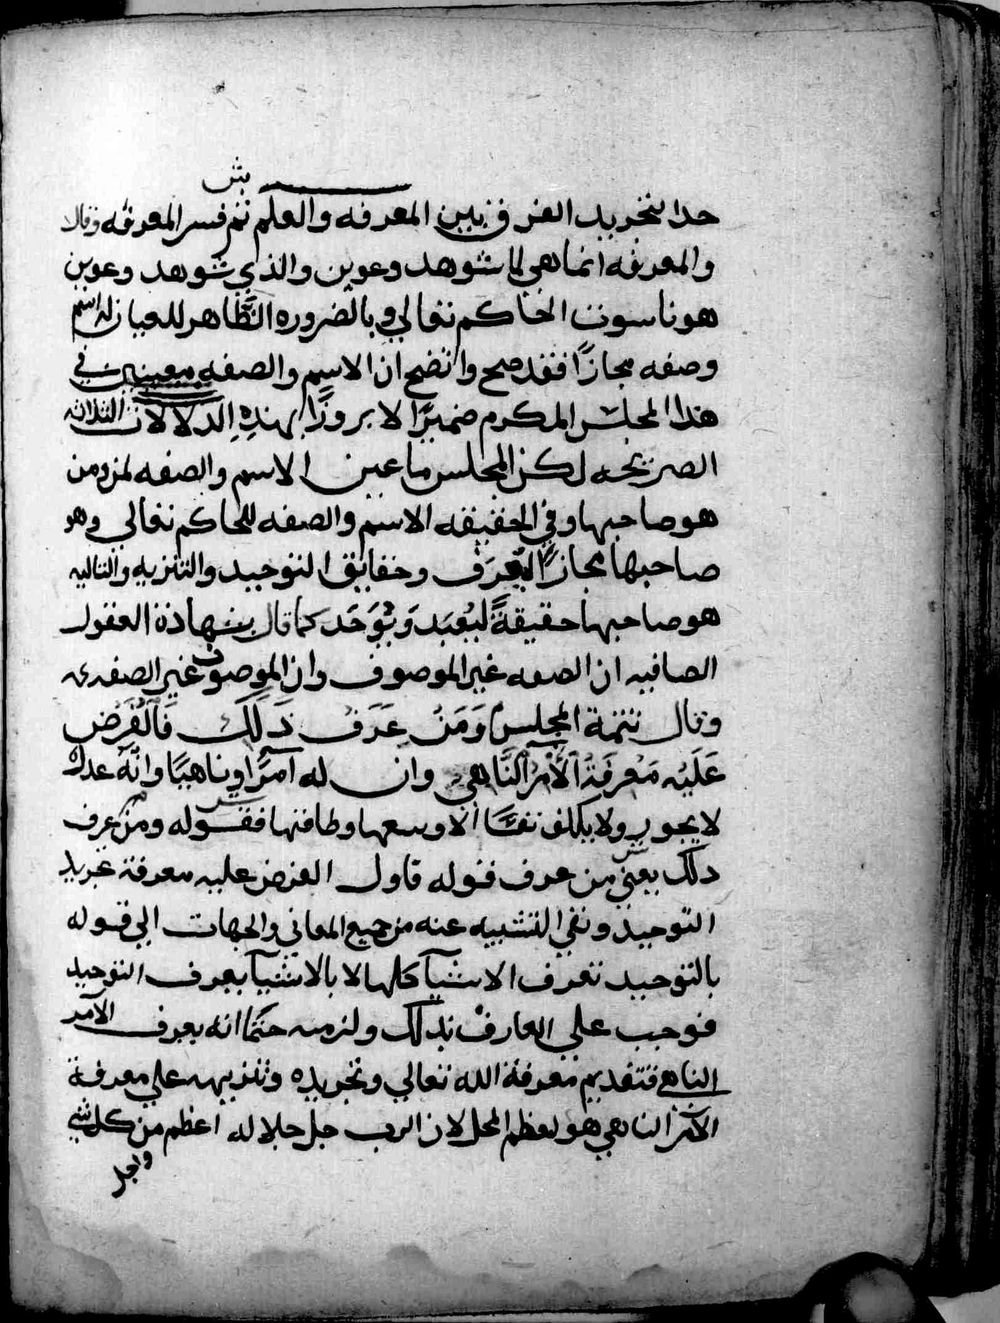 ش
حدا لتجريد الفرق بين المعرفه والعلم ثم فسر المعرفه وقال
والمعرفه انما هي لما شوهد وعوين والذي شوهد وعوين
هو ناسوت الحاكم تعالي وبالضروره الظاهر للعيان له اسم
وصفه مجازًا فقد صح واتضح ان الاسم والصفه معينين في
هذا المجلس المكرم ضميرًا لا بروزًا بهذه الدلالات الثلاثه
الصريحه لكن المجلس ما عين الاسم والصفه لمن ومن
هو صاحبها وفي الحقيقه الاسم والصفه للحاكم تعالي وهو
صاحبها مجازًا ليُعرَف وحقايق التوحيد والتنزيه والتاليه
هو صاحبها حقيقةً ليُعبَد وَيُوَحَد كما قال بشهادة العقول
الصافيه ان الصفه غير الموصوف وان الموصوف غير الصفه
وقال تتمة المجلس وَمَنْ عَرَفَ ذَلَكَ فَالْفَرْض
عَلَيْه مَعْرفَةُ الآمر النَّاهي وان له آمرًا وناهيًا وانَّه عدل
لا يجور ولا يكلف نفسًا الا وسعها وطاقتها فقوله ومن عرف
ذلك يعني من عرف قوله فاول الفرض عليه معرفة تجريد
التوحيد ونفي التشبيه عنه من جميع المعاني والجهات الي قوله
بالتوحيد تعرف الاشيآ كلها لا بالاشيآ يعرف التوحيد
فوجب علي العارف بذلك ولزمه حتمًا انه يعرف الآمر
الناهي فتقديم معرفة الله تعالي وتجريده وتنزيهه علي معرفة
الآمر الناهي هو لعظم المحل لان الرب جل جلاله اعظم من كل شي
واجل